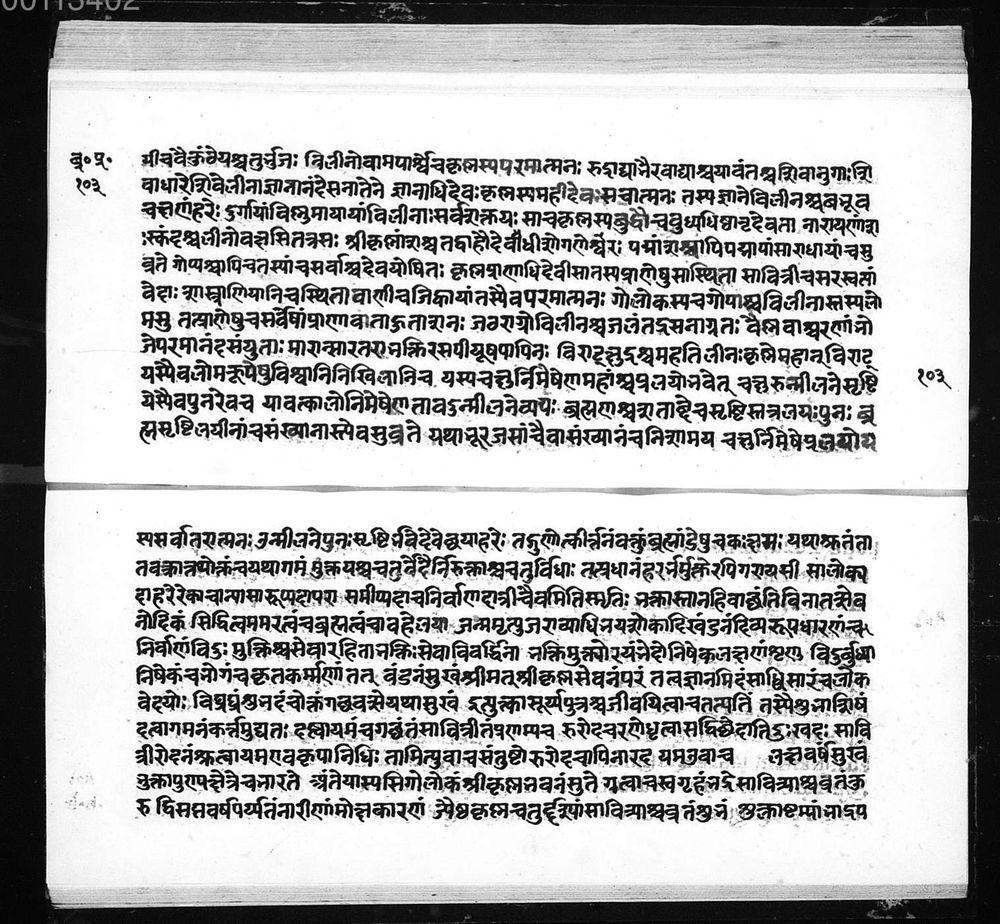 00113402
ब्र॰ प्र॰
१०३
यीचवैकुंठेयश्चतुर्भुजः विलीनोवामपार्श्वेचकृष्णस्यपरमात्मनः रुद्राद्याभैरवाद्याश्चयावंतश्चशिवानुगाःशि
वाधारेशिवेलीनाज्ञानानंदेसनातने ज्ञानाधिदेवःकृष्णस्यमहादेवःसचात्मनः तस्यज्ञानेविलीनश्चबभूव
चक्षणंहरेः दुर्गायांविष्णुमायायांविलीनाःसर्वशक्तयः साचकृष्णस्यबुद्धौचबुध्यधिष्ठातृदेवता नारायणांशा
ःस्कंदश्चलीनोवक्षसितत्रसः श्रीकृष्णांशश्चतद्बाहौदेवाधीशोगणेश्वरः पद्मांशाश्चापिपद्मायांसाराधायांचसु
व्रते गोप्यश्चापिचतस्यांचसर्वाश्चदेवयोषितः कृष्णप्राणाधिदेवीसातस्यप्राणेषुसास्थिता सावित्रीचसरस्वत्यां
वेदाः शास्त्राणियानिचस्थितावाणीचजिह्वायांतस्यैवपरमात्मनः गोलोकस्यचगोपाश्चविलीनास्तस्यलो
मसु तत्प्राणेषुचसर्वेषांप्राणावाताहुताशनः जठराग्नौविलीनश्चजलंतद्रसनाग्रतः वैष्णवाश्चरणांभो
जेपरमानंदसंयुताः सारात्सारतराभक्तिरसपीयूषपायिनः विराट्क्षुद्रश्चमहतिलीनःकृष्णेमहान्विराट्
यस्यैवलोमकूपेषुविश्वानिनिखिलानिच यस्यचक्षुर्निमेषेणमहांश्चप्रलयोभवेत् चक्षुरुन्मीलनेसृष्टि
१०३
र्यस्यैवपुनरेवच यावत्कालोनिमेषेणतावदुन्मीलनेव्ययः ब्रह्मणाश्चशताब्देचसृष्टिस्तत्रलयःपुनः ब्र
ह्मसृष्टिलयीनांचसंख्यानास्त्येवसुव्रते यथाभूरजसांचैवासंख्यानंचनिशामय चक्षुर्निमेषेप्रलयोय
स्यसर्वांतरात्मनः उन्मीलनेपुनःसृष्टि तद्गुणोत्कीर्त्तनंवक्तुंब्रह्मांडेषुचकःक्षमः यथाश्रुतंता
तवक्त्रात्तथोक्तंचयथागमं मुक्तयश्चचतुर्वेदैर्निरुक्ताश्चचतुर्विधाः तत्प्रधानंहरेर्भक्तिर्मुक्तेरपिगरीयसी सालोक्य
दाहरेरेकाचान्यासारूप्यदापरा सामीप्यदाचनिर्वाणदात्रीचैवमितिस्मृतिः भक्तास्तानहिवांछंतिविनातत्सेव
नादिकं सिद्धित्वममरत्वंचब्रह्मत्वंचावहेलया जन्ममृत्युजराव्याधिभयशोकादिखंडनंदिव्यरूपधारणंच
निर्वाणंविदुः मुक्तिश्चसेवारहिताभक्तिःसेवाविवर्द्धिनी भक्तिमुक्त्योरयंभेदोनिषेकलक्षणंशृणु विदुर्बुधा
निषेकंचभोगंचकृतकर्म्मणां तत् खंडनंसुखंश्रीमत्श्रीकृष्णसेवनंपरं तत्वज्ञानमिदंसाध्विसारंचलोक
वेदयोः विघ्नघ्नंशुभदंचोक्तंगच्छवत्सेयथासुखं इत्युक्त्वासूर्य्यपुत्रश्चजीवयित्वाचतत्पतिं तस्यैशुभाशिषं
दत्वागमनंकर्त्तुमुद्यतः दृष्ट्वायमंचगच्छंतंसावित्रीतंप्रणम्यच रुरोदचरणेधृत्वासद्विच्छेदातिदुःखदः सावि
त्रीरोदनंश्रुत्वायमएवकृपानिधिः तामित्युवाचसंतुष्टोरुरोदचापिनारद यमउवाच लक्षवर्षंसुखं
भुक्त्वापुण्यक्षेत्रेचभारते अंतेयास्यसिगोलोकंश्रीकृष्णभवनंसुते गत्वाचस्वगृहंभद्रेसावित्र्याश्चव्रतंकु
रु द्विसप्तवर्षपर्य्यंतंनारीणांमोक्षकारणं ज्येष्ठकृष्णचतुर्द्दश्यांसावित्र्याश्चव्रतंशुभं शुक्लाष्टम्यांभाद्रप